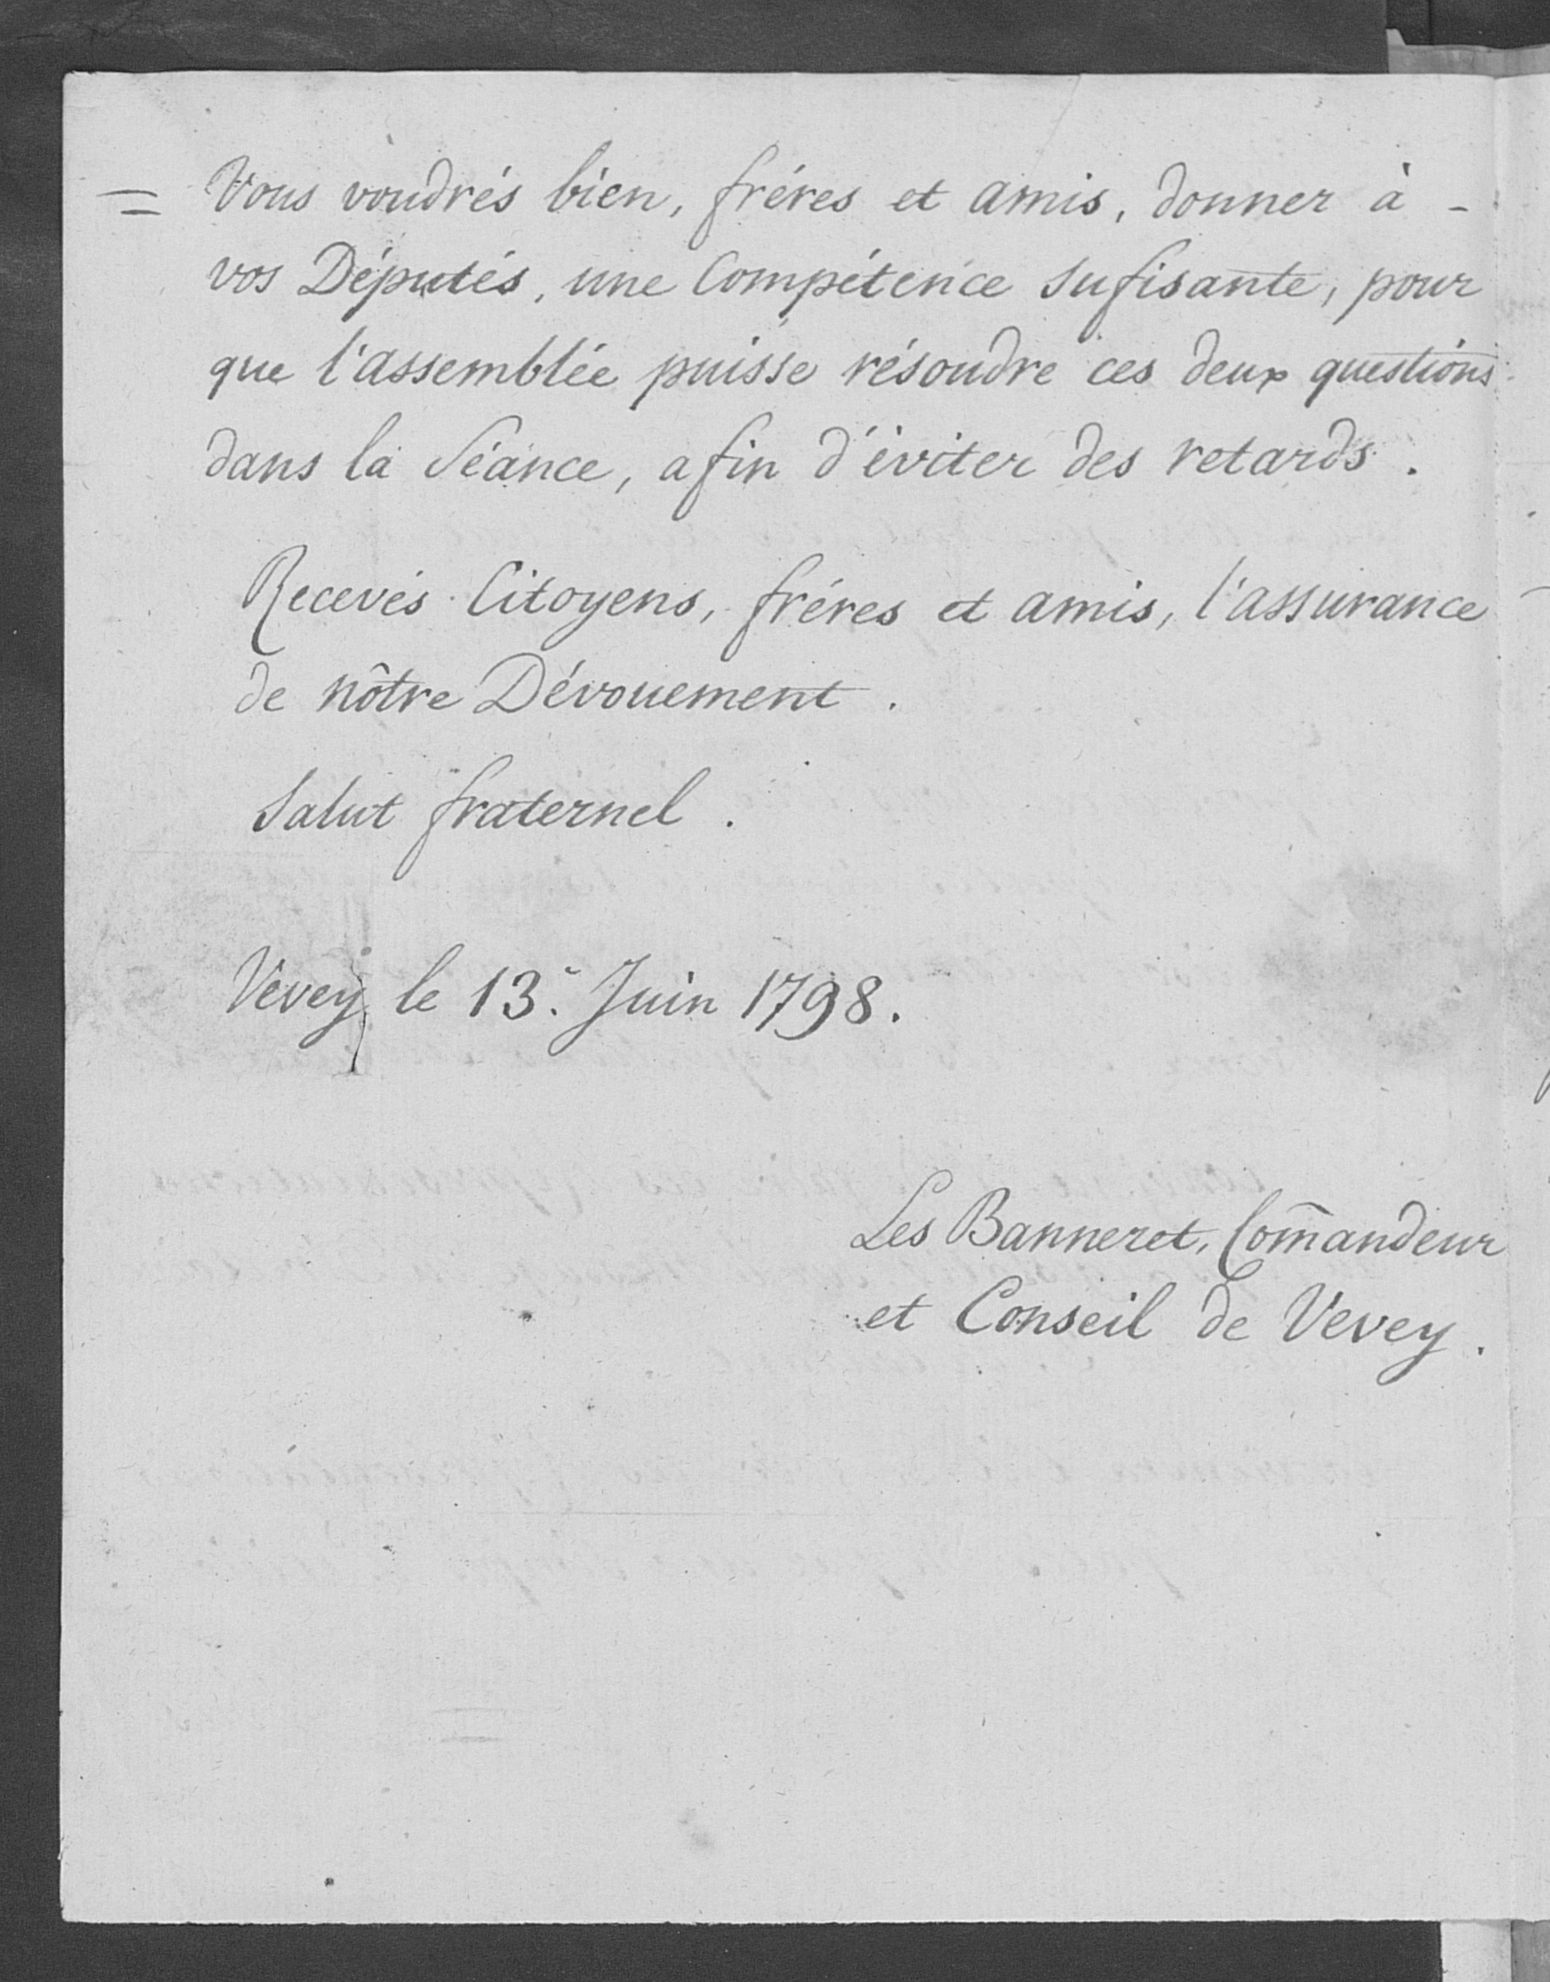 = Vous voudrés bien, fréres et amis, donner à -
vos Députés, une Compétence sufisante, pour
que l'assemblée puisse résoudre ces deux questions
dans la Séance, afin d'éviter des retards.
Recevés Citoyens, fréres et amis, l'assurance
de nôtre Dévouement.
Salut fraternel.
Vevey le 13. Juin 1798.
Les Banneret, Com̄andeur
et Conseil de Vevey.